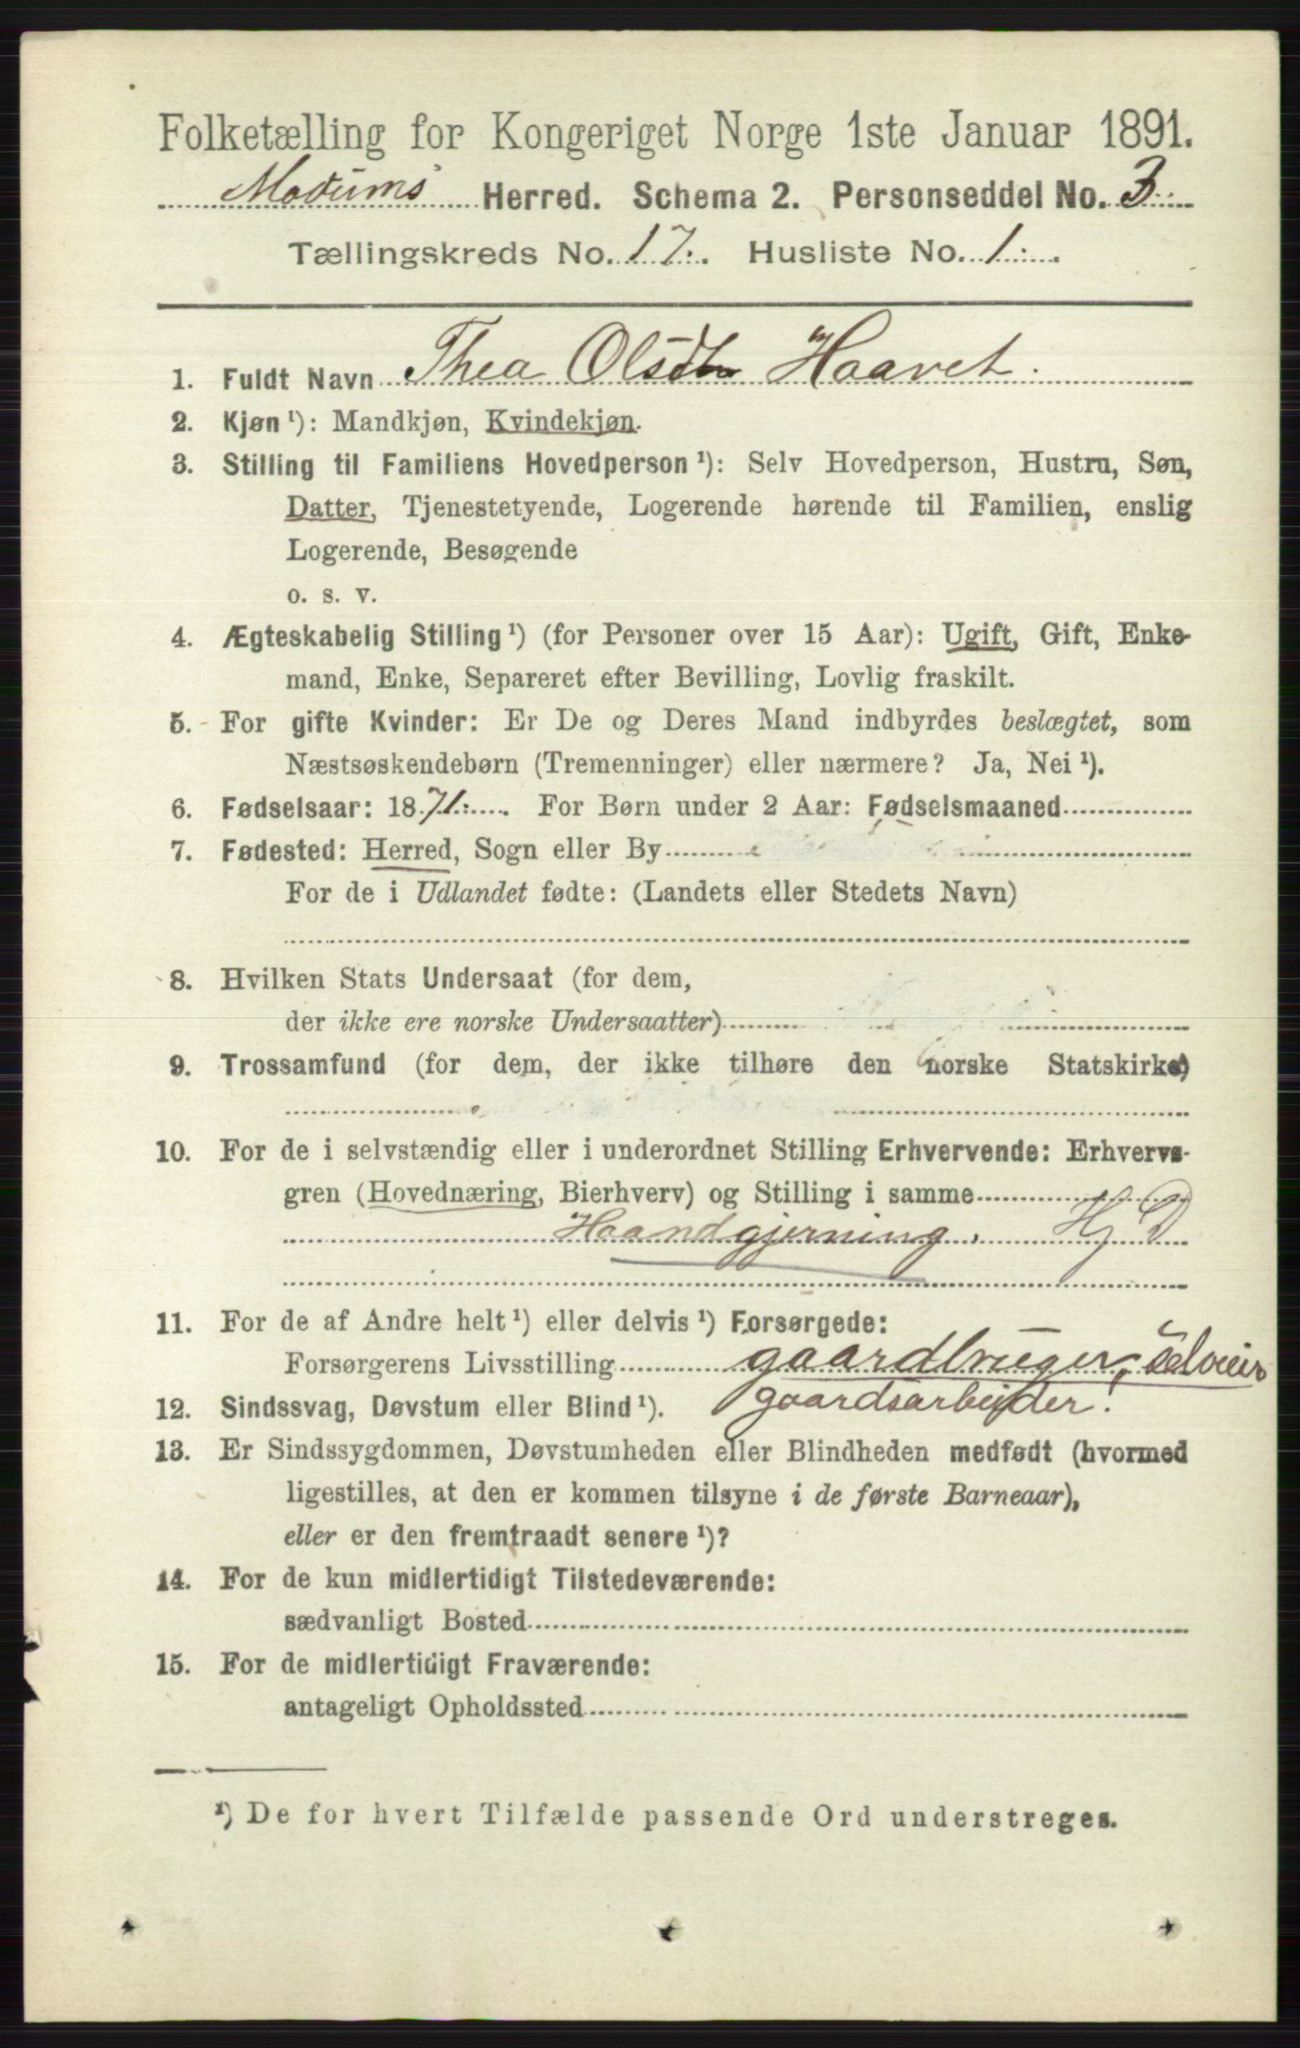 Folketælling for Kongeriget Norge 1ste Januar 1891.
Modums Herred. Schema 2. Personseddel No. 3.
Tællingskreds No. 17. Husliste No. 1.
1. Fuldt Navn Thea Olsdtr Haavet.
2. Kjøn ¹): Mandkjøn, Kvindekjøn.
3. Stilling til Familiens Hovedperson ¹): Selv Hovedperson, Hustru, Søn,
Datter, Tjenestetyende, Logerende hørende til Familien, enslig
Logerende, Besøgende
o. s. v.
4. Ægteskabelig Stilling ¹) (for Personer over 15 Aar): Ugift, Gift, Enke-
mand, Enke, Separeret efter Bevilling, Lovlig fraskilt.
5. For gifte Kvinder: Er De og Deres Mand indbyrdes beslægtet, som
Næstsøskendebørn (Tremenninger) eller nærmere? Ja, Nei ¹).
6. Fødselsaar: 1871. For Børn under 2 Aar: Fødselsmaaned
7. Fødested: Herred, Sogn eller By
For de i Udlandet fødte: (Landets eller Stedets Navn)
8. Hvilken Stats Undersaat (for dem,
der ikke ere norske Undersaatter)
9. Trossamfund (for dem, der ikke tilhøre den norske Statskirke)
10. For de i selvstændig eller i underordnet Stilling Erhvervende: Erhvervs-
gren (Hovednæring, Bierhverv) og Stilling i samme
Haandgjerning. Hj D
11. For de af Andre helt ¹) eller delvis ¹) Forsørgede:
Forsørgerens Livsstilling gaardbruger, Selveier
12. Sindssvag, Døvstum eller Blind ¹). gaardsarbeider!
13. Er Sindssygdommen, Døvstumheden eller Blindheden medfødt (hvormed
ligestilles, at den er kommen tilsyne i de første Barneaar),
eller er den fremtraadt senere ¹)?
14. For de kun midlertidigt Tilstedeværende:
sædvanligt Bosted
15. For de midlertidigt Fraværende:
antageligt Opholdssted
¹) De for hvert Tilfælde passende Ord understreges.